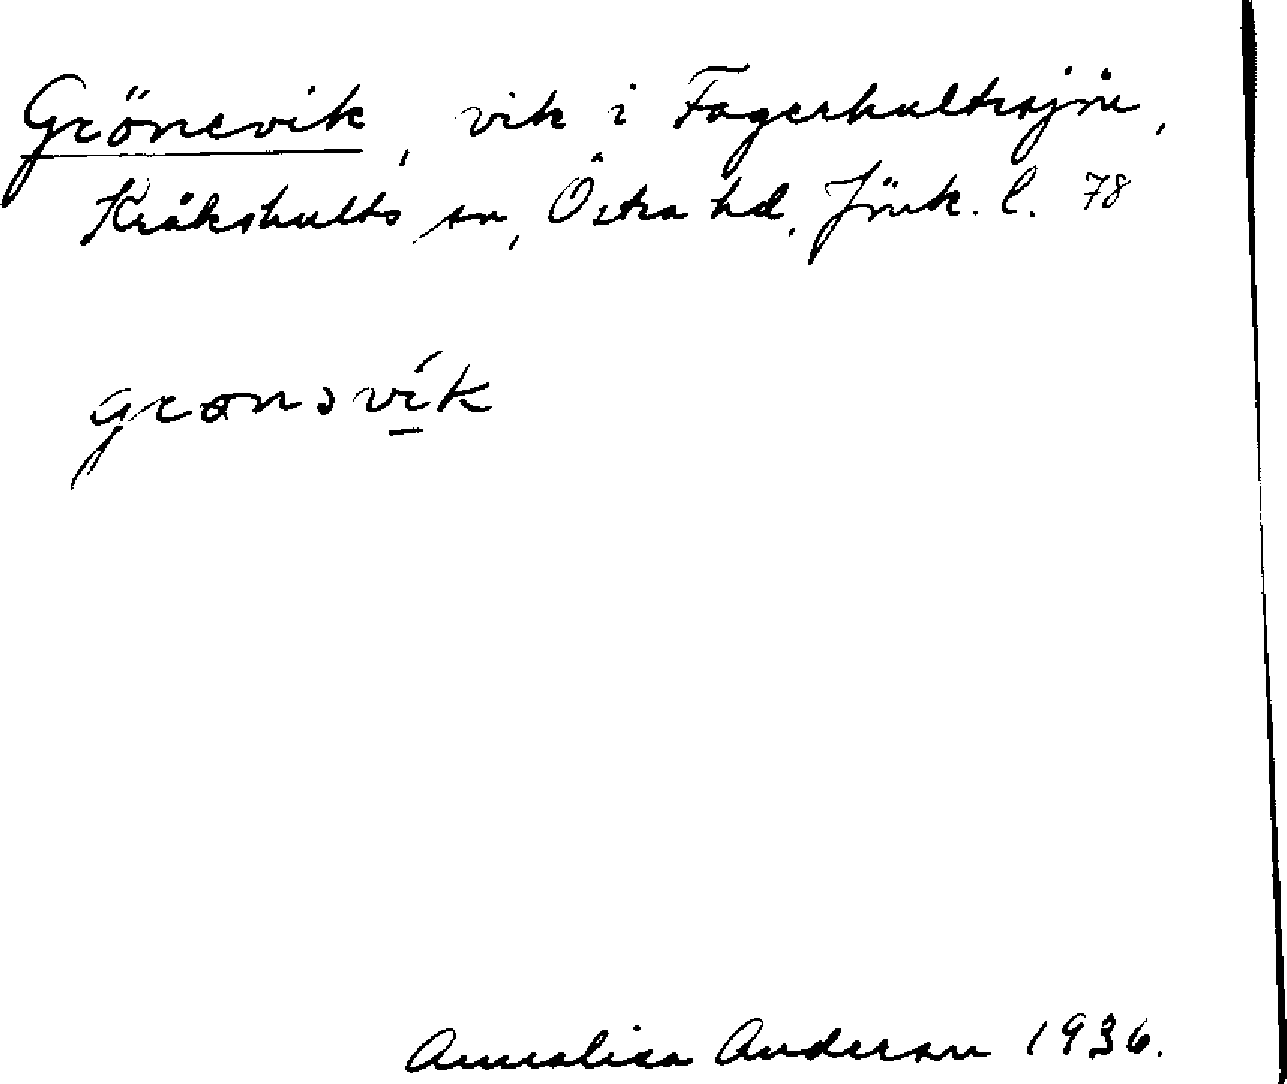 Grönevik, vik i Fagerhultsjön,
Kråkshults sn, Östra hd, Jönk. l. 78
grønəvík
Annalisa Anderson 1936.